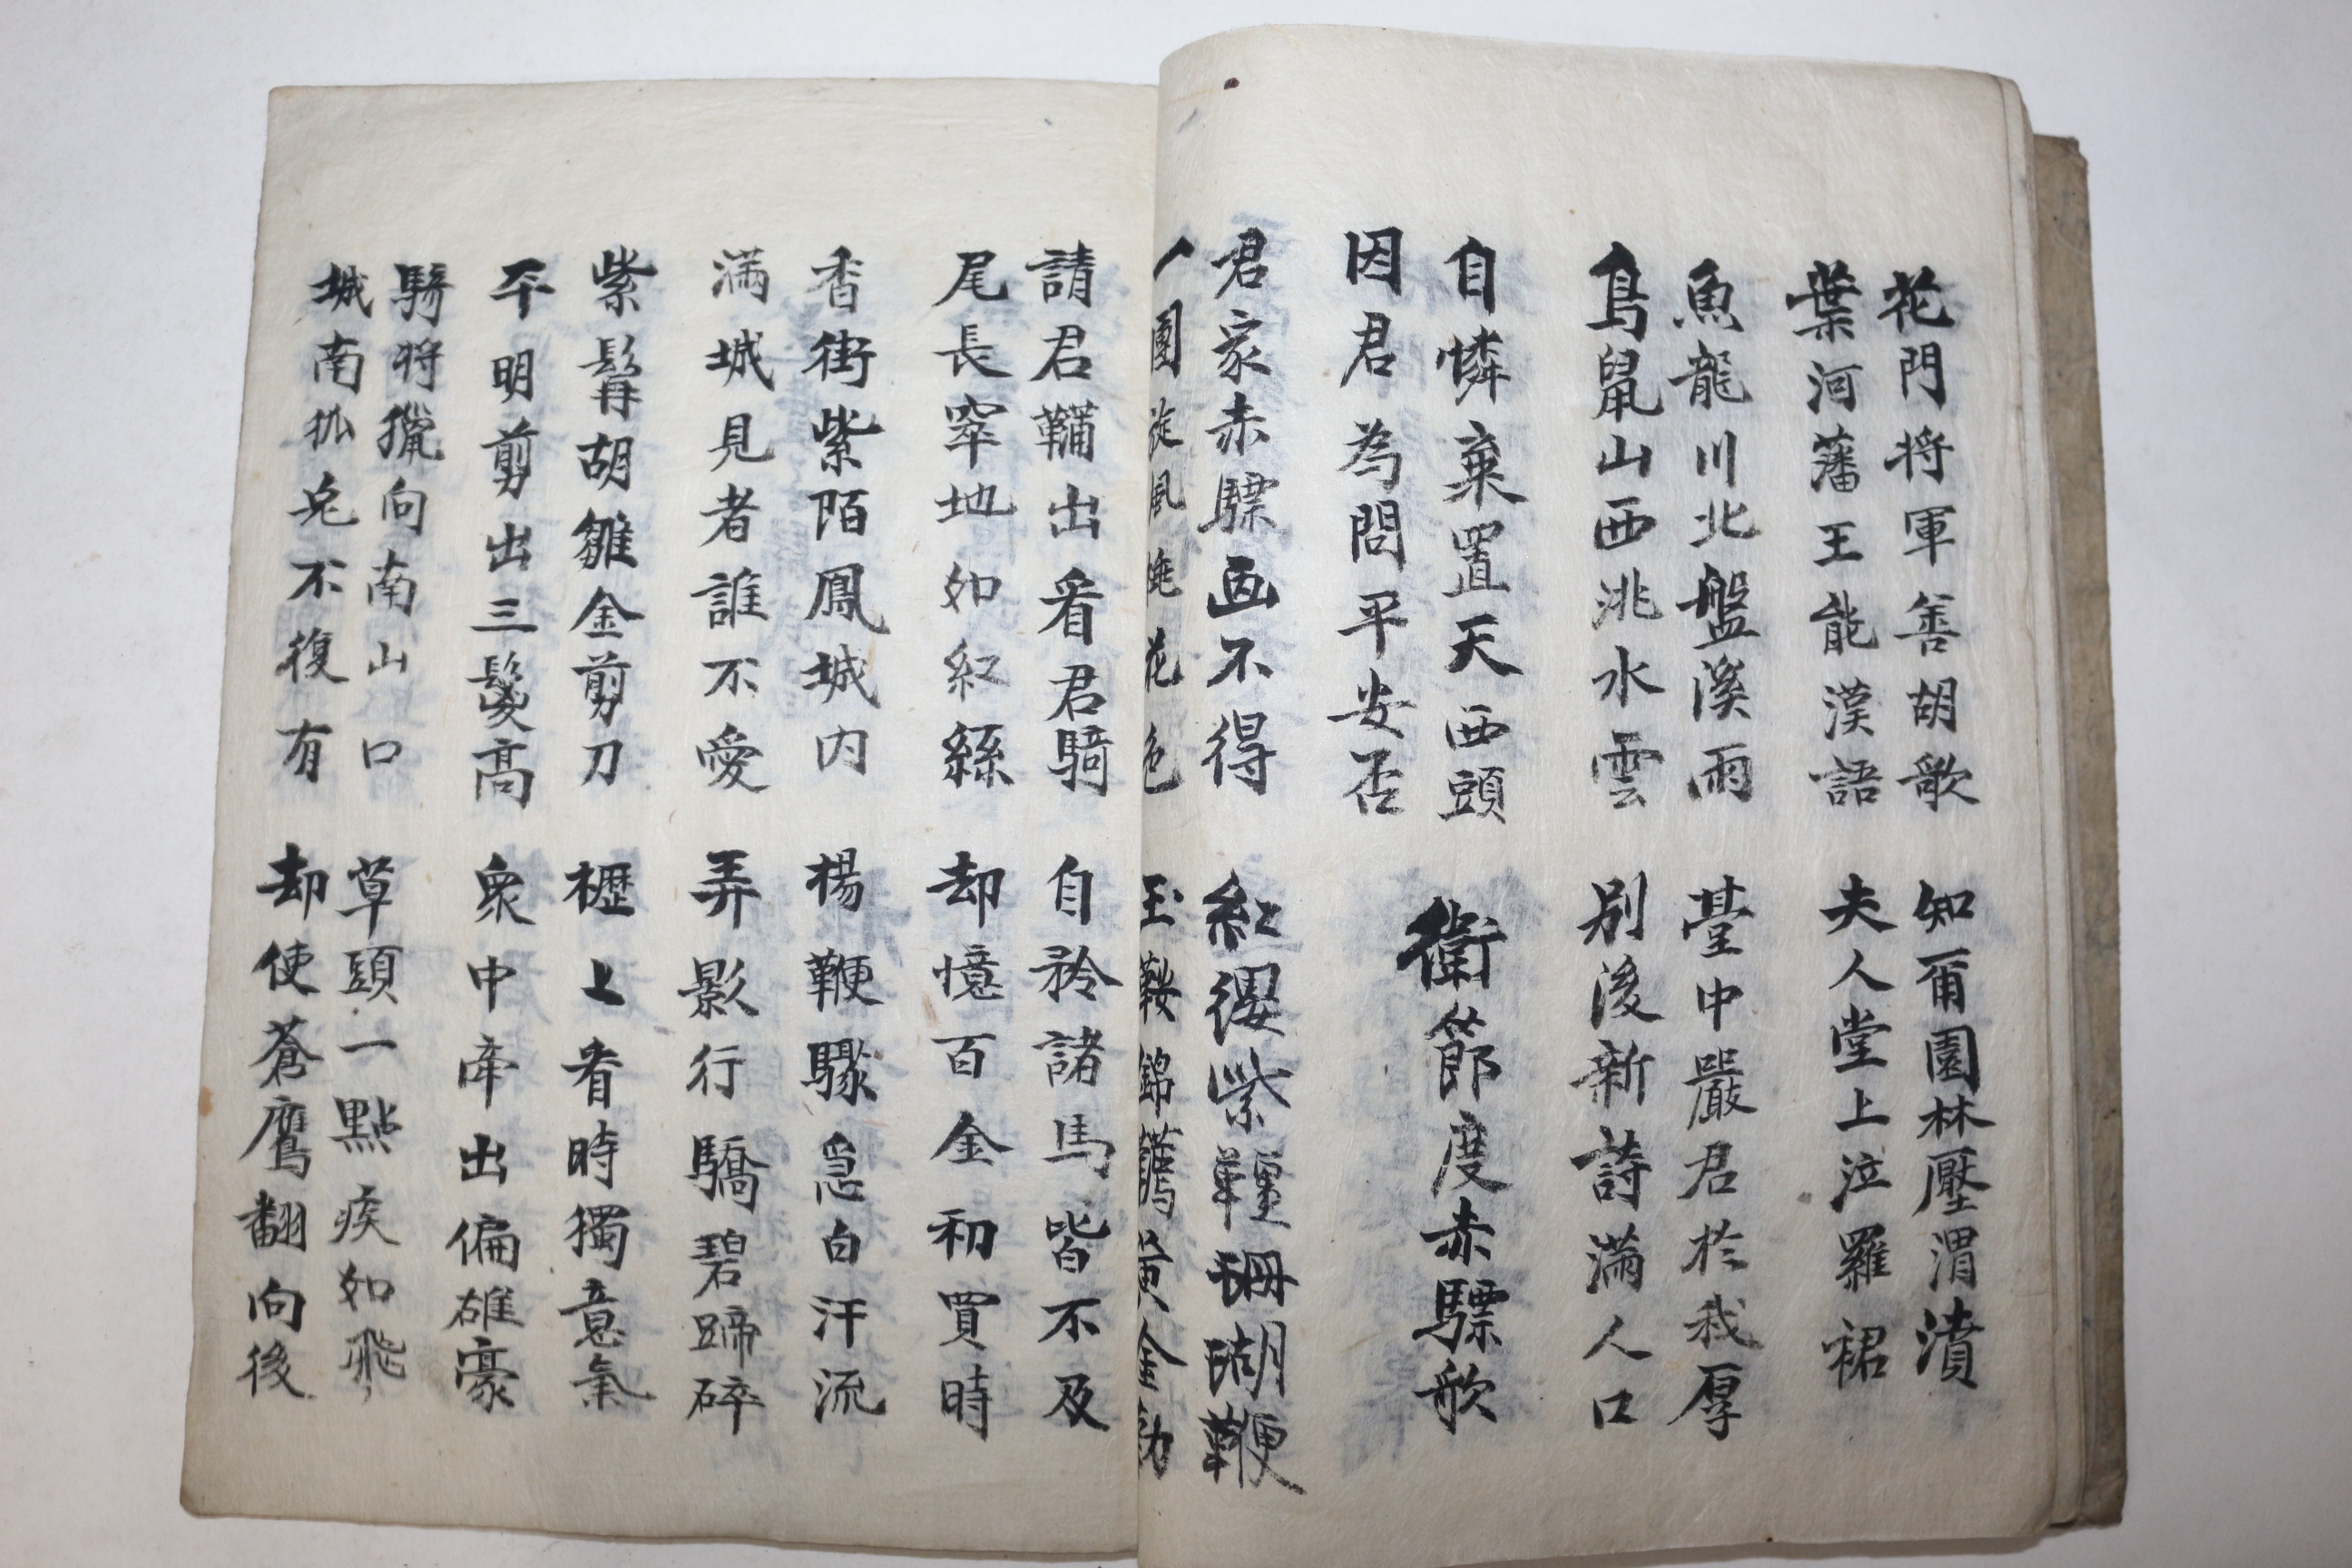 花門将軍善胡歌 知爾園林壓渭濆
葉河藩王能漢語 夫人堂上泣羅裙
魚龍川北盤溪雨 臺中嚴君於我厚
鳥鼠山西洮水雲 別後新詩滿人口
自憐棄置天西頭
因君為問平安否 衛節度赤驃歌
君家赤驃画不得 紅纓紫鞚珊瑚鞭
團旋風桃花色 玉鞍錦韉黃金勒
請君鞴出看君騎 自矜諸馬皆不及
尾長窣地如紅絲 却憶百金初買時
香街紫陌鳳城内 楊鞭驟急白汗流
滿城見者誰不愛 弄影行驕碧蹄碎
紫髯胡雛金剪刀 櫪上看時獨意氣
平明剪出三鬉高 衆中牽出偏雄豪
騎将獵向南山口 草頭一點疾如飛
城南狐兎不復有 却使蒼鷹翻向後